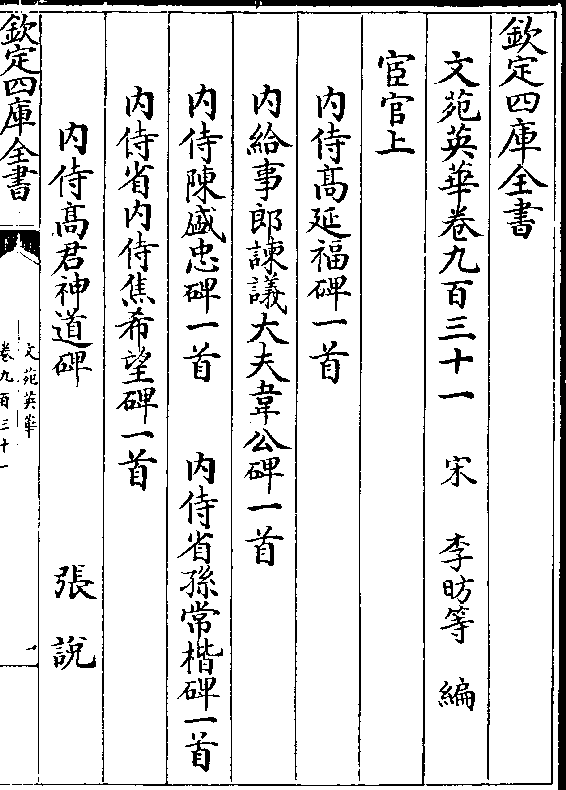 欽定四庫全書
文苑英華卷九百三十一 宋 李昉等 編
宦官上
内侍高延福碑一首
内給事郎諫議大夫韋公碑一首
内侍陳盛忠碑一首 内侍省孫常楷碑一首
内侍省内侍焦希望碑一首
内侍髙君神道碑 張說
欽定四庫全書
文苑英華
卷九百三十一
一